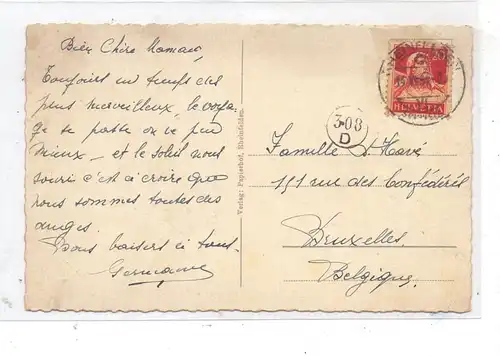 Bien Chère Maman,
Toujours un temps des
plus merveilleux, le voya-
ge se passe on ne peu
mieux - et le soleil nous
souri c'est à croire que
nous sommes toutes des
anges.
Bons baisers à tous
Germaine
Verlag: Papierhof, Rheinfelden.
HELVETIA
308
D
Famille d'Havé
151 rue des Confédérés
Bruxelles
Belgique.